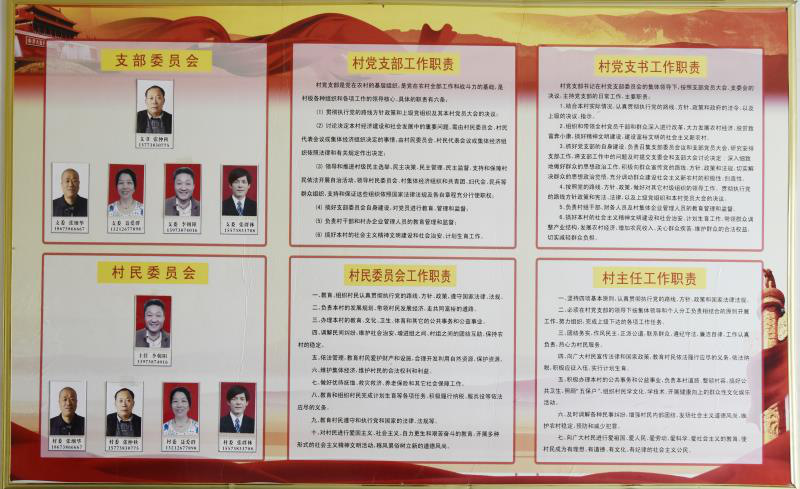 支部委员会
支书 张钟秋
15773830775
支委 张细华
18673986667
支委 聂爱群
13212677598
支委 李朝阳
15973874016
支委 张群林
15573833788
村党支部工作职责
村党支部是党在农村的基层组织,是党在农村部工作和战斗力的基础,是
村级各种组织和各项工作的领导核心。具体的职责有六条。
(1) 贯彻执行党的路线方针政策和上级党组织及其本村党员大会的决议;
(2) 讨论决定本村经济建设和社会发展中的重要问题,需由村民委员会、村民
代表会议或集体经济组织决定的事情,由村民委员会、村民代表会议或集体经济组
织依照法律和有关规定作出决定;
(3) 领导和推进村级民主选举、民主决策、民主管理、民主监督,支持和保障村
民依法开展自治活动,领导村民委员会、村集体经济组织和共青团、妇代会、民兵等
群众组织,支持和保证这些组织依照国家法律法规及各自章程充分行使职权;
(4) 搞好支部委员会自身建设,对党员进行教育、管理和监督;
(5) 负责村干部和村办企业管理人员的教育管理和监督;
(6) 搞好本村的社会主义精神文明建设和社会治安、计划生育工作。
村党支书工作职责
村党支部书记在村党支部委员会的集体领导下,按照支部党员大会、支委会的
决议,主持党支部的日常工作,主要职责:
1.结合本村实际情况,认真贯彻执行党的路线、方针、政策和政府的法令,以及
上级的决议、指示。
2.组织和带领全村党员干部和群众深入进行改革,大力发展农村经济,脱贫致
富奔小康,搞好精神文明建设,建设富裕文明的社会主义新农村。
3.抓好党支部的自身建设,负责召集支部委员会议和支部党员大会,研究安排
支部工作,将支部工作中的问题及时提交支委会和支部大会讨论决定;深入细致
地做好群众的思想政治工作,积极向群众宣传党的路线、方针、政策和法规,切实解
决群众的思想政治觉悟,充分调动群众建设社会主义新农村的积极性、创造性。
4.按照党的路线、方针、政策,做好对其它村级组织的领导工作,贯彻执行党
的路线方针政策和宪法、法律,以及上级党组织和本村党员大会的决议。
5.负责村经干部、财务人员及村集体企业管理人员的教育管理和监督。
6.搞好本村的社会主义精神文明建设和社会治安、计划生育工作。带领群众调
整产业结构,发展农村经济,增加农民收入,关心群众疾苦,维护群众的合法权益,
切实减轻群众负担。
村民委员会
主任 李朝阳
15973874016
村委 张细华
18673986667
村委 张钟秋
15773830775
村委 聂爱群
13212677598
村委 张群林
15573833788
村民委员会工作职责
一、教育、组织村民认真贯彻执行党的路线、方针、政策,遵守国家法律、法规。
二、负责本村的发展规划,带领村民发展经济,走共同富裕的道路。
三、办理本村的教育、文化、卫生、体育和其它的公共事务和公益事业。
四、调解民间纠纷,维护社会治安,增进组之间、村组之间的团结互助,保持农
村的稳定。
五、依法管理,教育村民爱护财产和设施,合理开发利用自然资源,保护资源。
六、维护集体经济,维护村民的合法权利和利益。
七、做好优待抚恤、救灾救济、养老保险和其它社会保障工作。
八、教育和组织村民完成计划生育等各项任务,积极履行纳税、服兵役等依法
应尽的义务。
九、教育村民遵守和执行党和国家的法律、法规等。
十、对村民进行爱国主义、社会主义、自力更生和艰苦奋斗的教育,开展多种
形式的社会主义精神文明活动,移风易俗树立新的道德风尚。
村主任工作职责
一、坚持四项基本原则,认真贯彻执行党的路线、方针、政策和国家法律法规。
二、必须在村党支部的领导下按集体领导和个人分工负责相结合的原则开展
工作,努力组织,完成上级下达的各项工作任务。
三、团结务实,作风民主,正派公道,联系群众,遵纪守法,廉洁自律,工作认真
负责,热心为村民服务。
四、向广大村民宣传法律和国家政策,教育村民依法履行应尽的义务,依法纳
税,积极应征入伍,实行计划生育。
五、积极办理本村的公共事务和公益事业,负责本村道路,整顿村容,搞好公
共卫生,照顾“五保户”,组织村民学文化、学技术,开展健康向上的群众性文化娱乐
活动。
六、及时调解各种民事纠纷,增强村民内部团结,发扬社会主义道德风尚,维
护农村稳定,预防和减少犯罪。
七、向广大村民进行爱祖国、爱人民、爱劳动、爱科学、爱社会主义的教育,使
村民成为有理想、有道德、有文化、有纪律的社会主义公民。